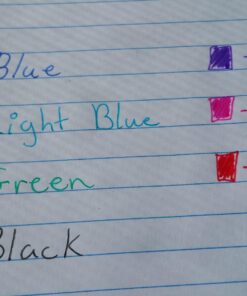 Blue
Light Blue
Green
Black